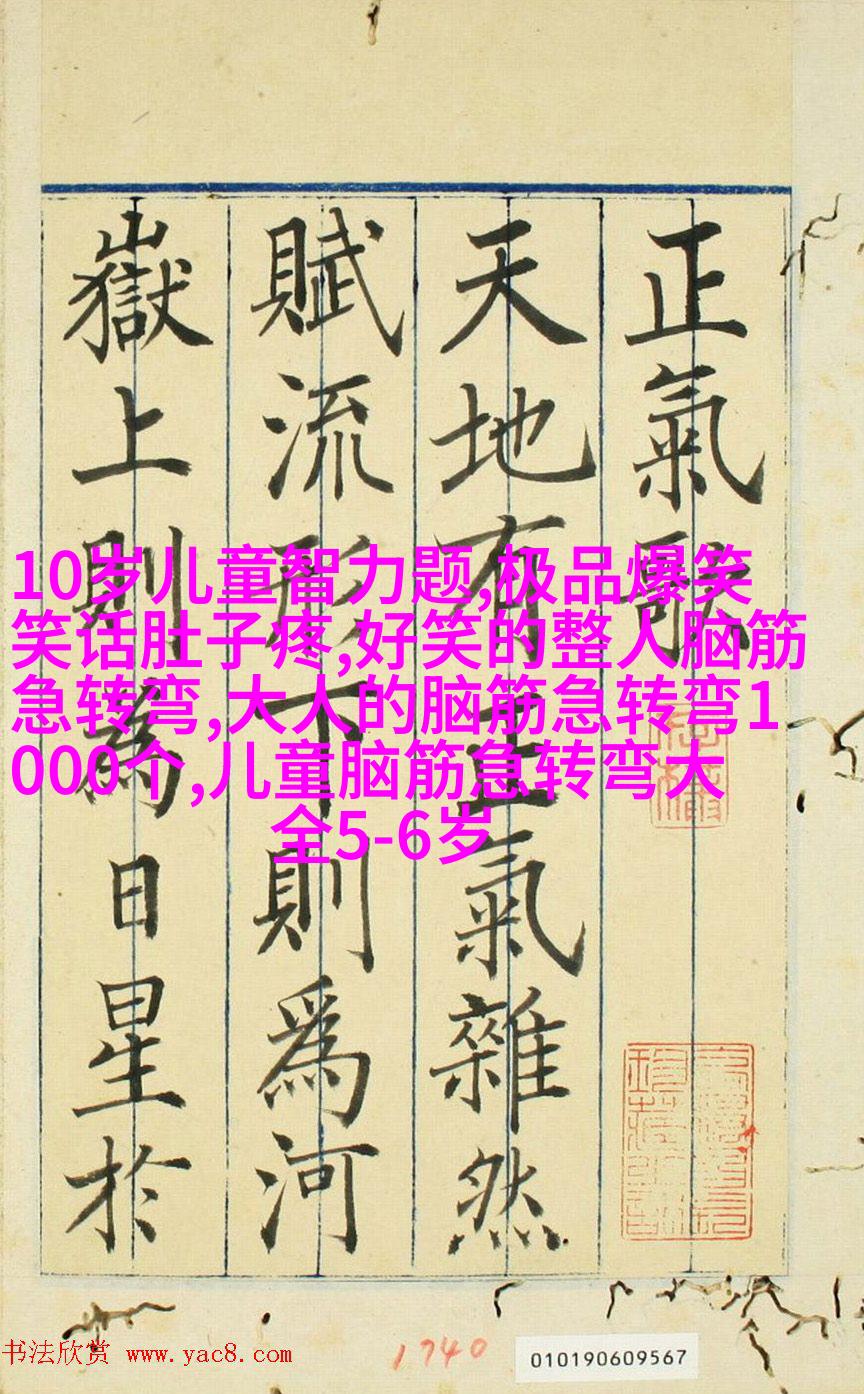 正氣歌
天地有正氣雜然
賦流形下則爲河
嶽上則爲日星於
10岁儿童智力题,极品爆笑
笑话肚子疼,好笑的整人脑筋
急转弯,大人的脑筋急转弯1
000个,儿童脑筋急转弯大
全5-6岁
书法欣赏 www.yac8.com
1740
010190609567